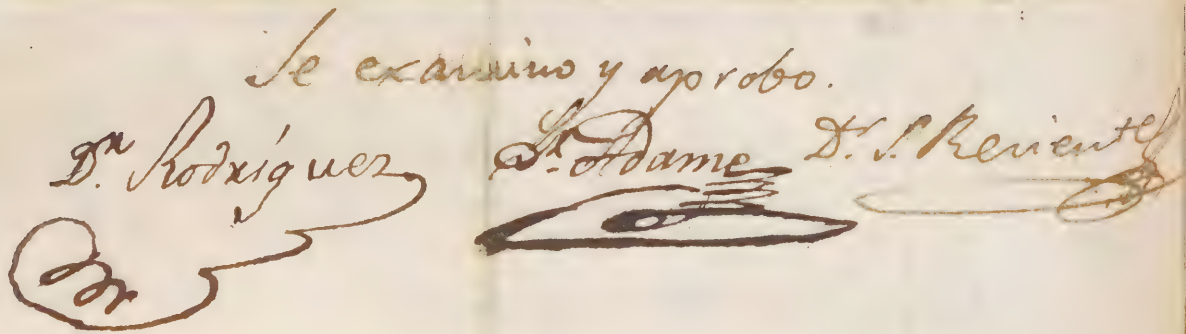 Se examino y aprobo.
Dr. Rodríguez Dr. Adame Dr. S. Reriente